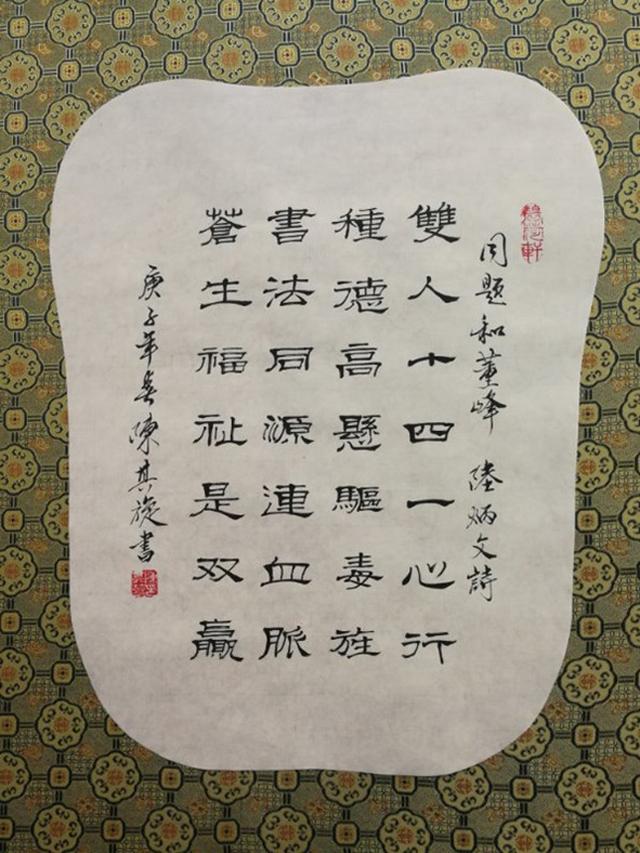 同题和董峰 陸炳文詩
雙人十四一心行
種德高懸驅毒旌
書法同源連血脈
蒼生福祉是双贏
庚子年吴陳其旋書